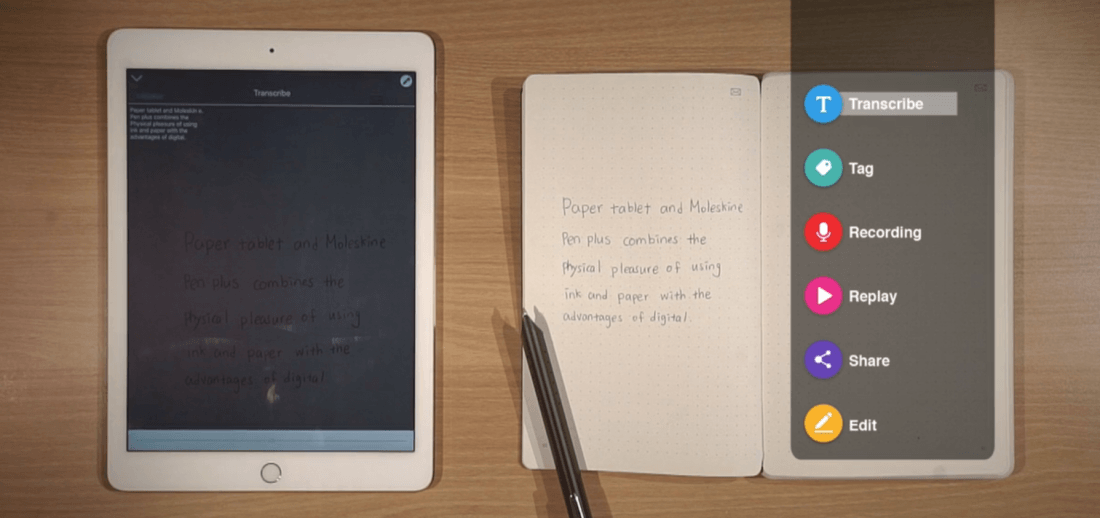 Transcribe
Paper tablet and Moleskin e.
Pen plus combines the
Physical pleasure of using
ink and paper with the
advantages of digital.
Paper tablet and Moleskine
Pen plus combines the
physical pleasure of using
ink and paper with the
advantages of digital
Paper tablet and Moleskine
Pen plus combines the
physical pleasure of using
ink and paper with the
advantages of digital.
Transcribe
Tag
Recording
Replay
Share
Edit